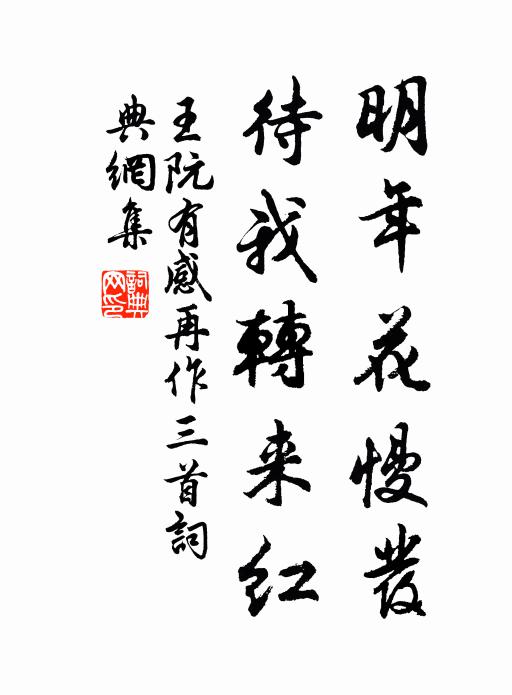 明年花慢發
待我轉来红
王阮有感再作三首詞
典網集
詞典
网印